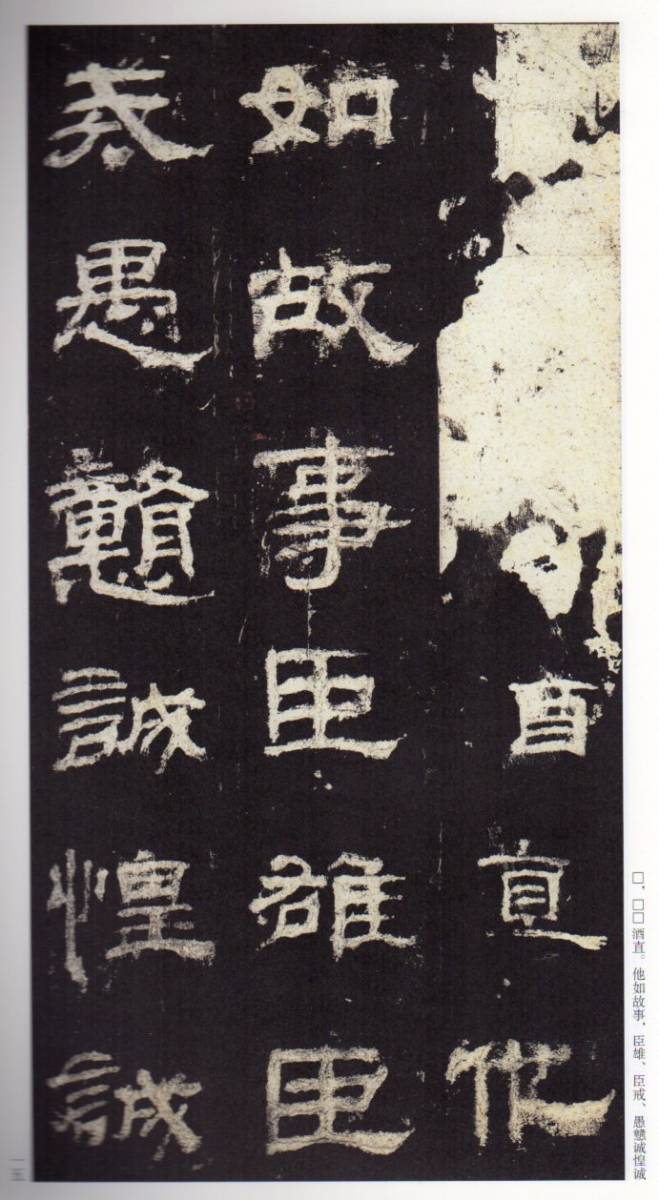 酒直他
如故事臣雄臣
戒愚戇誠惶誠
□，□□酒直。他如故事，臣雄、臣戒、愚戆诚惶诚
一五